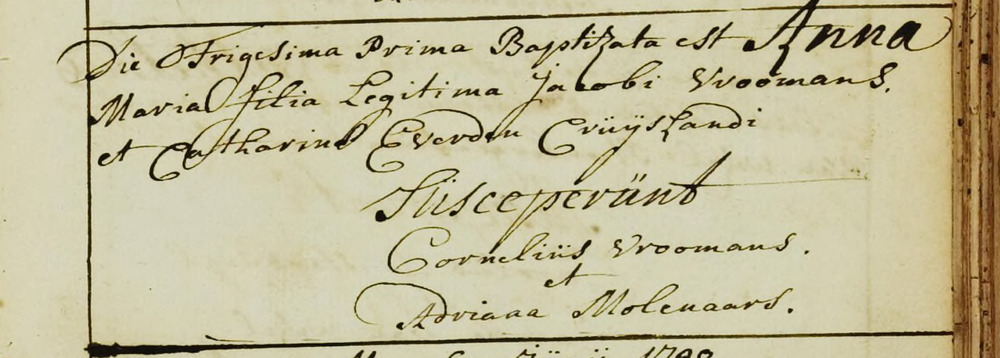 Die Trigesima Prima Baptizata est Anna
Maria filia Legitima Jacobi Vroomans.
et Catharina Everden Crüÿslandi
Süsceperünt
Corneliüs Vroomans.
et
Adriana Molenaars.
1798